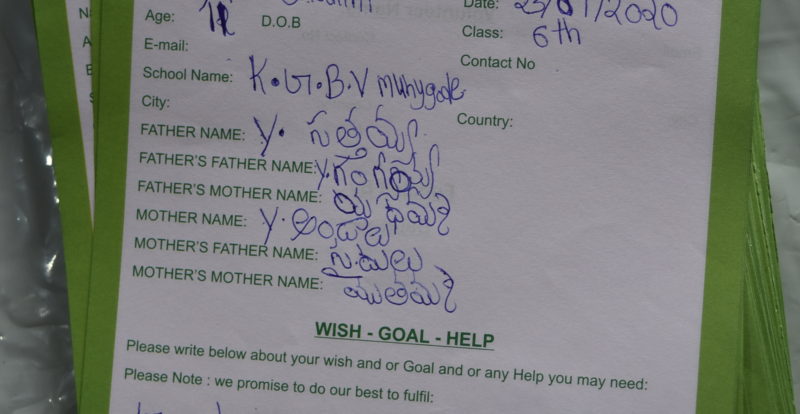 Date: 23/01/2020
Age: 11 D.O.B
Class: 6th
E-mail:
Contact No
School Name: K.G.B.V
City:
Country:
FATHER NAME: Y. సత్తయ్య
FATHER'S FATHER NAME: Y. గంగయ్య
FATHER'S MOTHER NAME:
MOTHER NAME: Y. అండాలు
MOTHER'S FATHER NAME:
MOTHER'S MOTHER NAME:
WISH - GOAL - HELP
Please write below about your wish and or Goal and or any Help you may need:
Please Note : we promise to do our best to fulfil: